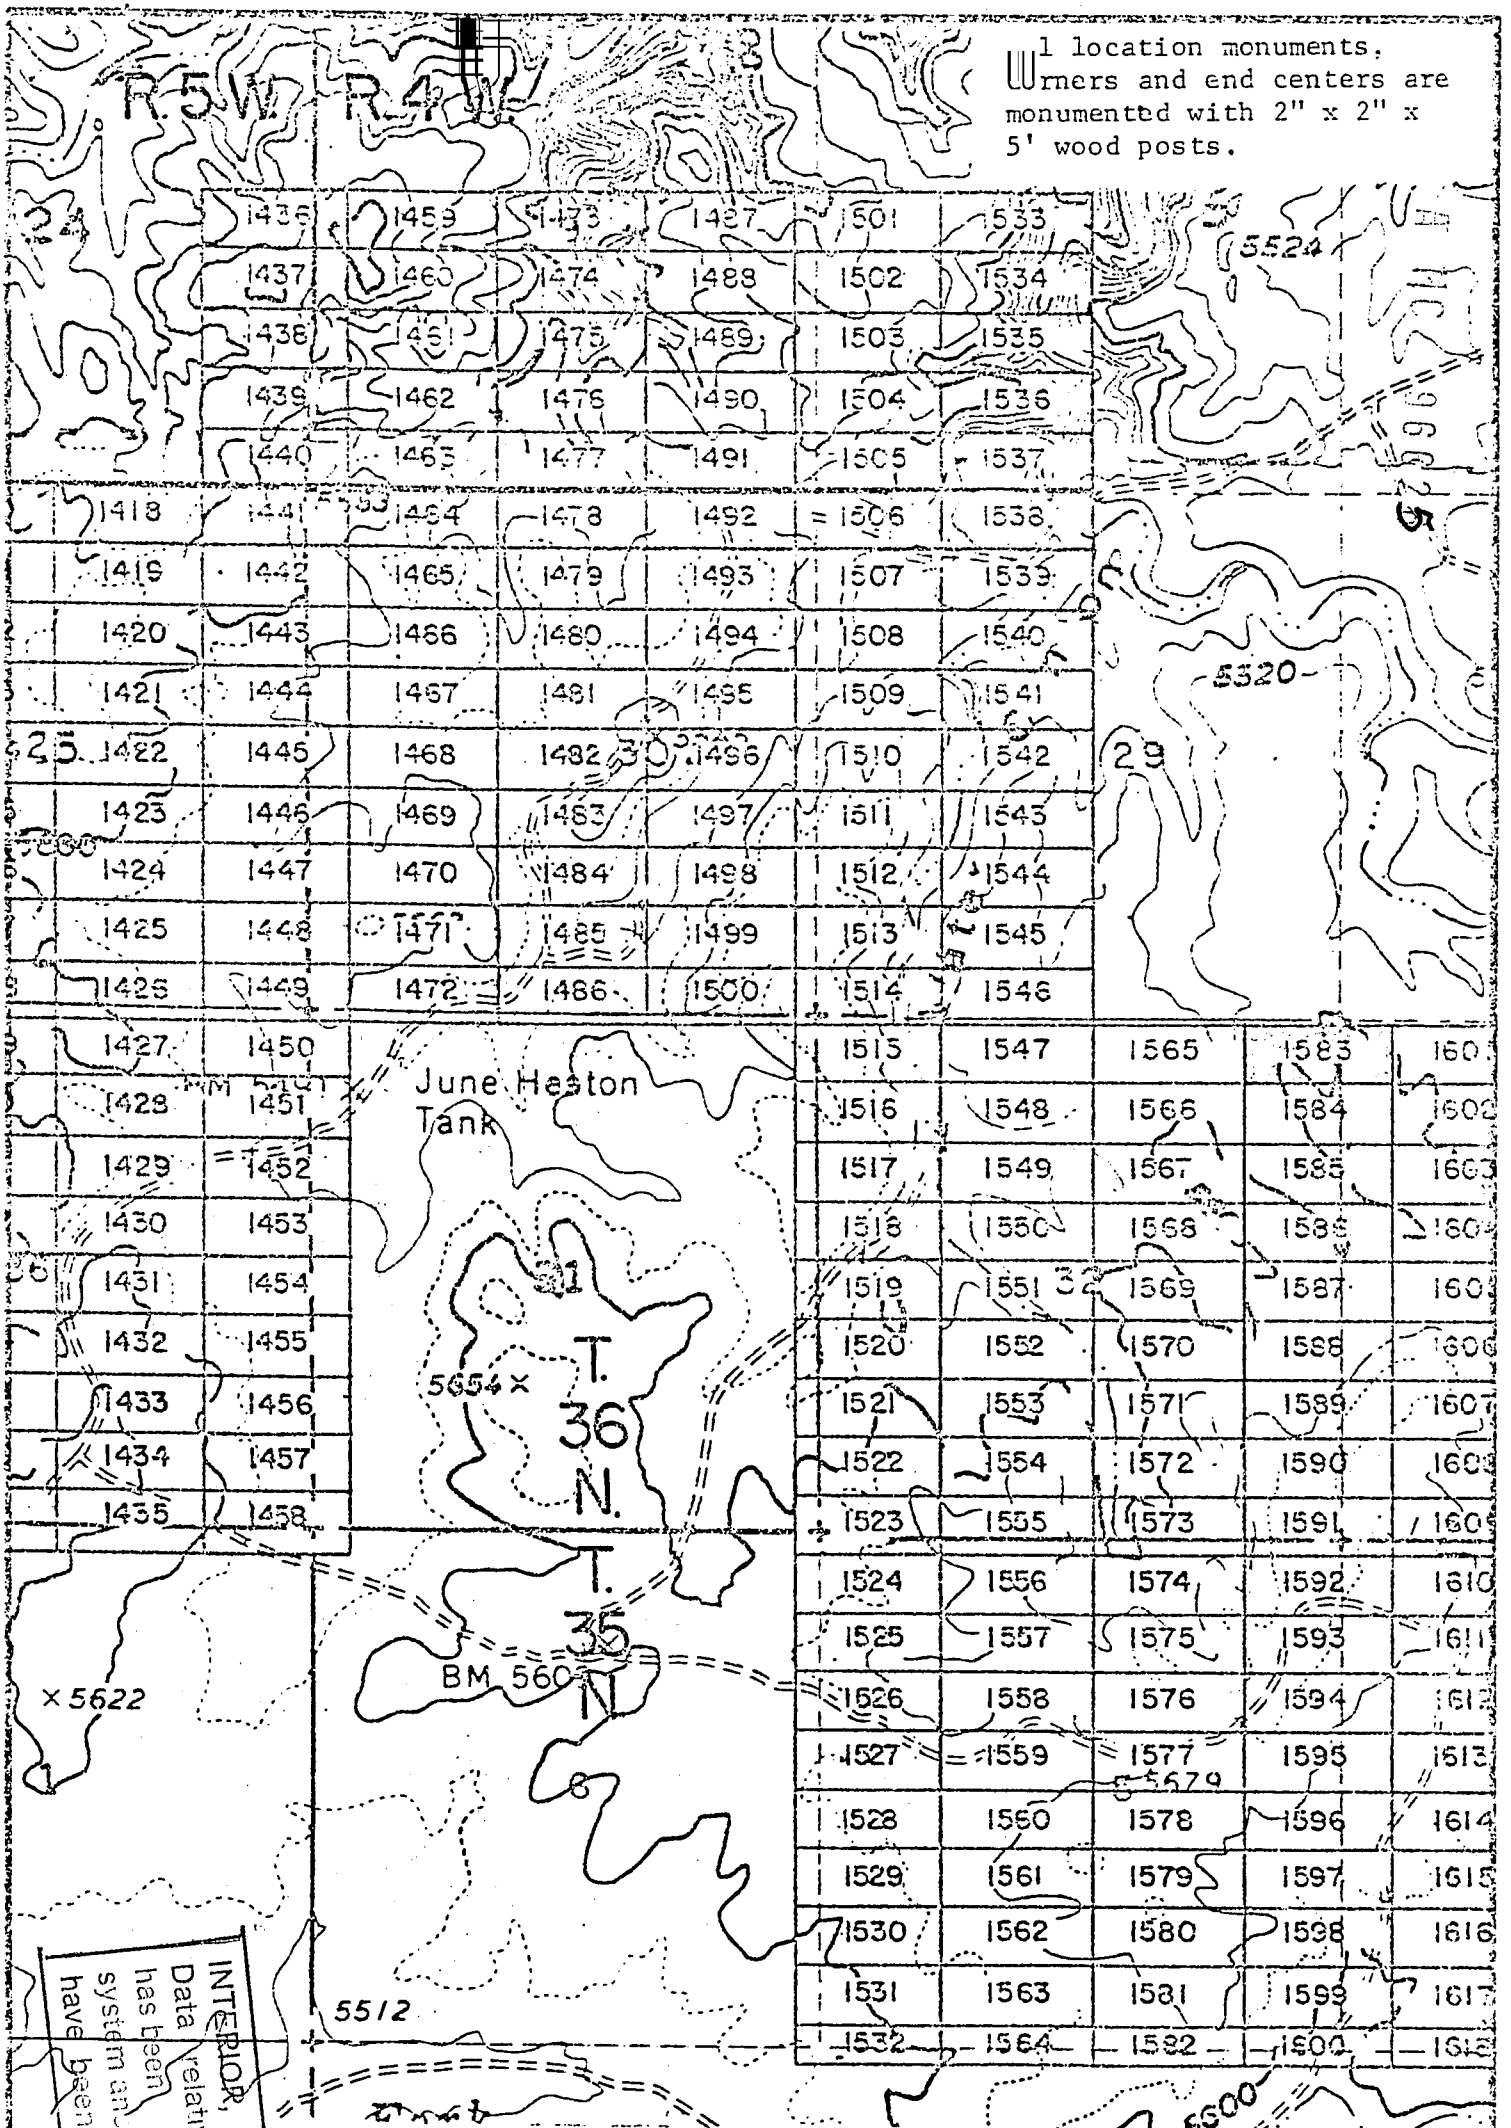 l location monuments.
rners and end centers are
monumented with 2" x 2" x
5' wood posts.
R.5W. R.4W.
24 1436 1459 1473 1487 1501 1533
5524
1437 1460 1474 1488 1502 1534
1438 1461 1475 1489 1503 1535
1439 1462 1476 1490 1504 1536
1440 1463 1477 1491 1505 1537
1418 1441 1464 1478 1492 1506 1538
1419 1442 1465 1479 1493 1507 1539
1420 1443 1466 1480 1494 1508 1540
1421 1444 1467 1481 1495 1509 1541
5320
25 1422 1445 1468 1482 30 1496 1510 1542 29
1423 1446 1469 1483 1497 1511 1543
1424 1447 1470 1484 1498 1512 1544
1425 1448 1471 1485 1499 1513 1545
1426 1449 1472 1486 1500 1514 1546
1427 1450 1515 1547 1565 1583 160
June Heaton
Tank
1428 1451 1516 1548 1566 1584 1602
1429 1452 1517 1549 1567 1585 1603
1430 1453 1518 1550 1568 1586 160
36 1431 1454 31 1519 1551 32 1569 1587 160
1432 1455 1520 1552 1570 1588 1606
5654 ×
T.
36
N.
1433 1456 1521 1553 1571 1589 1607
1434 1457 1522 1554 1572 1590 160
1435 1458 1523 1555 1573 1591 160
T.
35
N
1524 1556 1574 1592 1610
1525 1557 1575 1593 1611
BM 560
× 5622
1526 1558 1576 1594 1612
1527 1559 1577 1595 1613
5679
6
1
1528 1560 1578 1596 1614
1529 1561 1579 1597 1615
1530 1562 1580 1598 1616
1531 1563 1581 1599 1617
5512
1532 1564 1582 1600 1618
5600
INTERIOR,
Data relati
has been
system an
have been